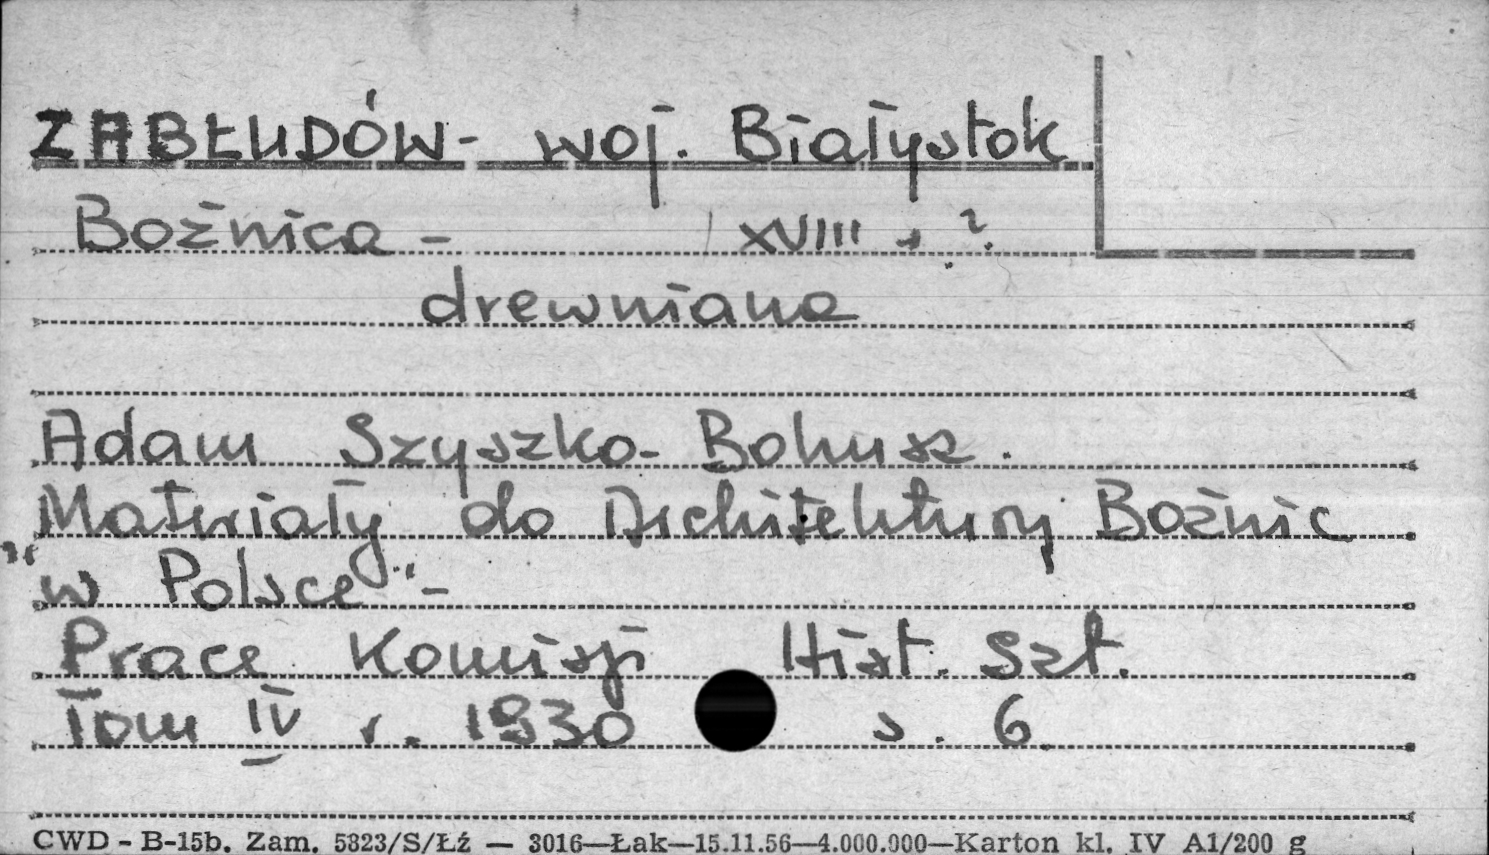 ZABŁUDÓW - woj. Białystok
Bożnica - XVIII s. ?
drewniana
Adam Szyszko-Bohusz.
Materiały do Architektury Bożnic
„w Polsce" -
Prace Komisji Hist. Szt.
Tom IV r. 1930 s. 6
CWD - B-15b. Zam. 5823/S/Łź — 3016—Łak—15.11.56—4.000.000—Karton kl. IV A1/200 g